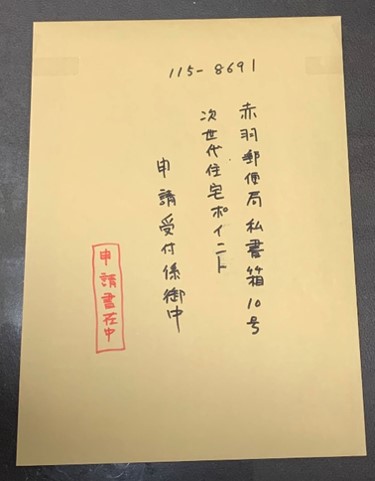 115-8691
赤羽郵便局私書箱10号
次世代住宅ポイニト
申請受付係御中
申請書在中